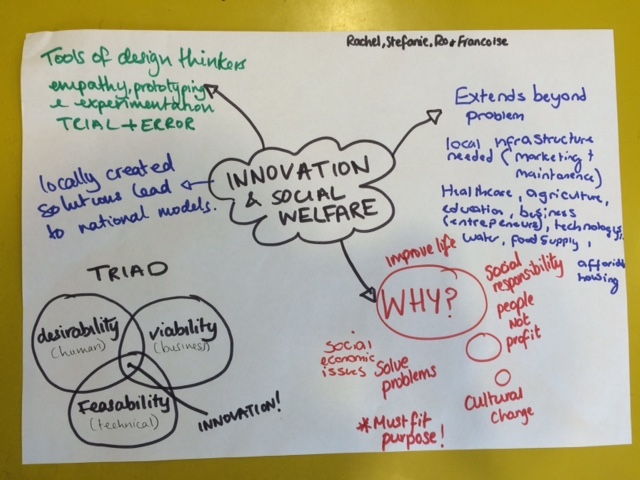 Rachel, Stefanie, Ro & Francoise
Tools of design thinkers
empathy, prototyping
e experimentation
TRIAL + ERROR
locally created
solutions lead
to national models.
INNOVATION
& SOCIAL
WELFARE
Extends beyond
problem
local infrastructure
needed (marketing +
maintanence)
Healthcare, agriculture,
education, business
(entrepreneurs), technology,
water, food supply,
affordable
housing
TRIAD
desirability
(human)
viability
(business)
Feasability
(technical)
INNOVATION!
improve life
WHY?
Social
responsibility
people
not
profit
Social
economic
issues
Solve
problems
*Must fit
purpose!
Cultural
change